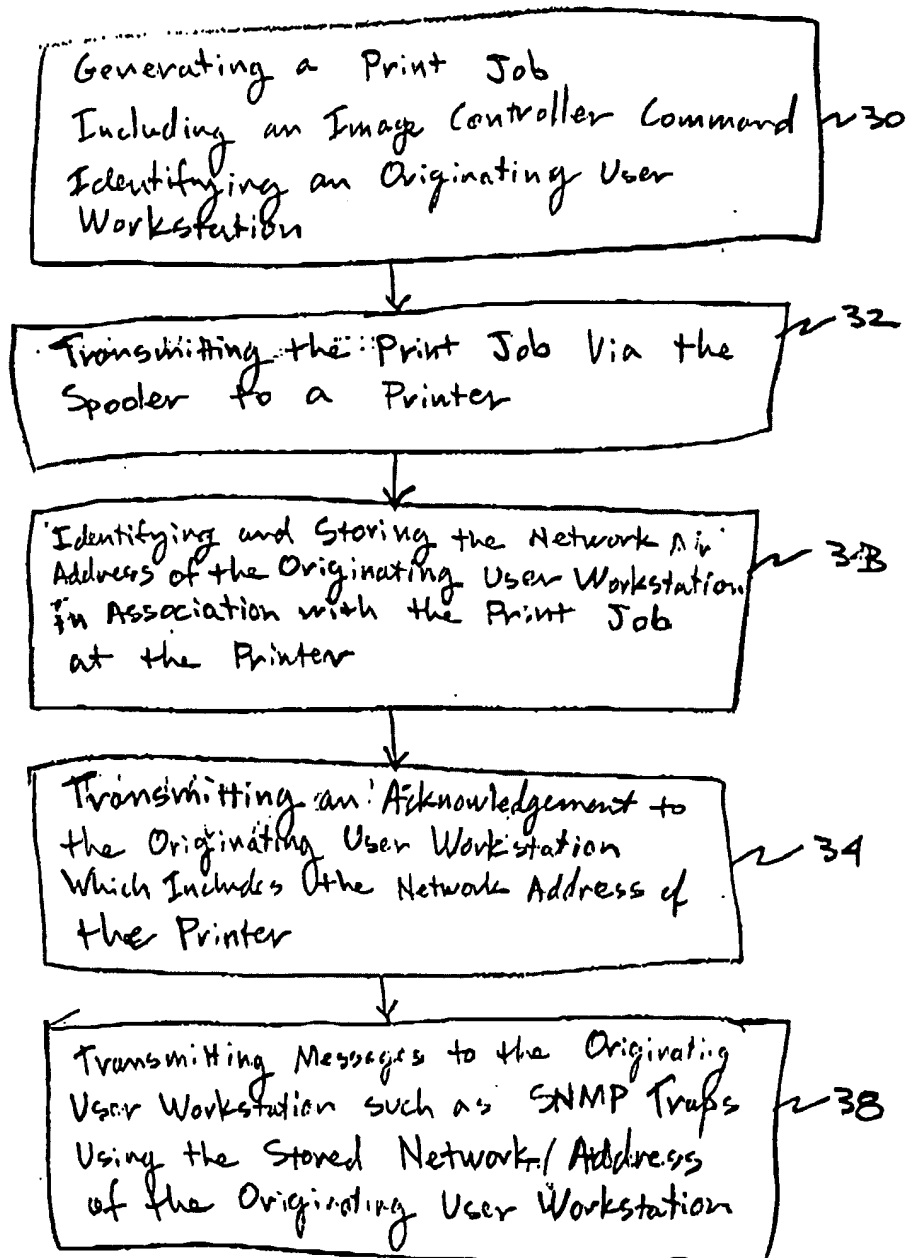 Generating a Print Job
Including an Image Controller Command
Identifying an Originating User
Workstation
30
Transmitting the Print Job Via the
Spooler to a Printer
32
Identifying and Storing the Network
Address of the Originating User Workstation
in Association with the Print Job
at the Printer
3B
Transmitting an Acknowledgement to
the Originating User Workstation
Which Includes the Network Address of
the Printer
34
Transmitting Messages to the Originating
User Workstation such as SNMP Traps
Using the Stored Network/Address
of the Originating User Workstation
38